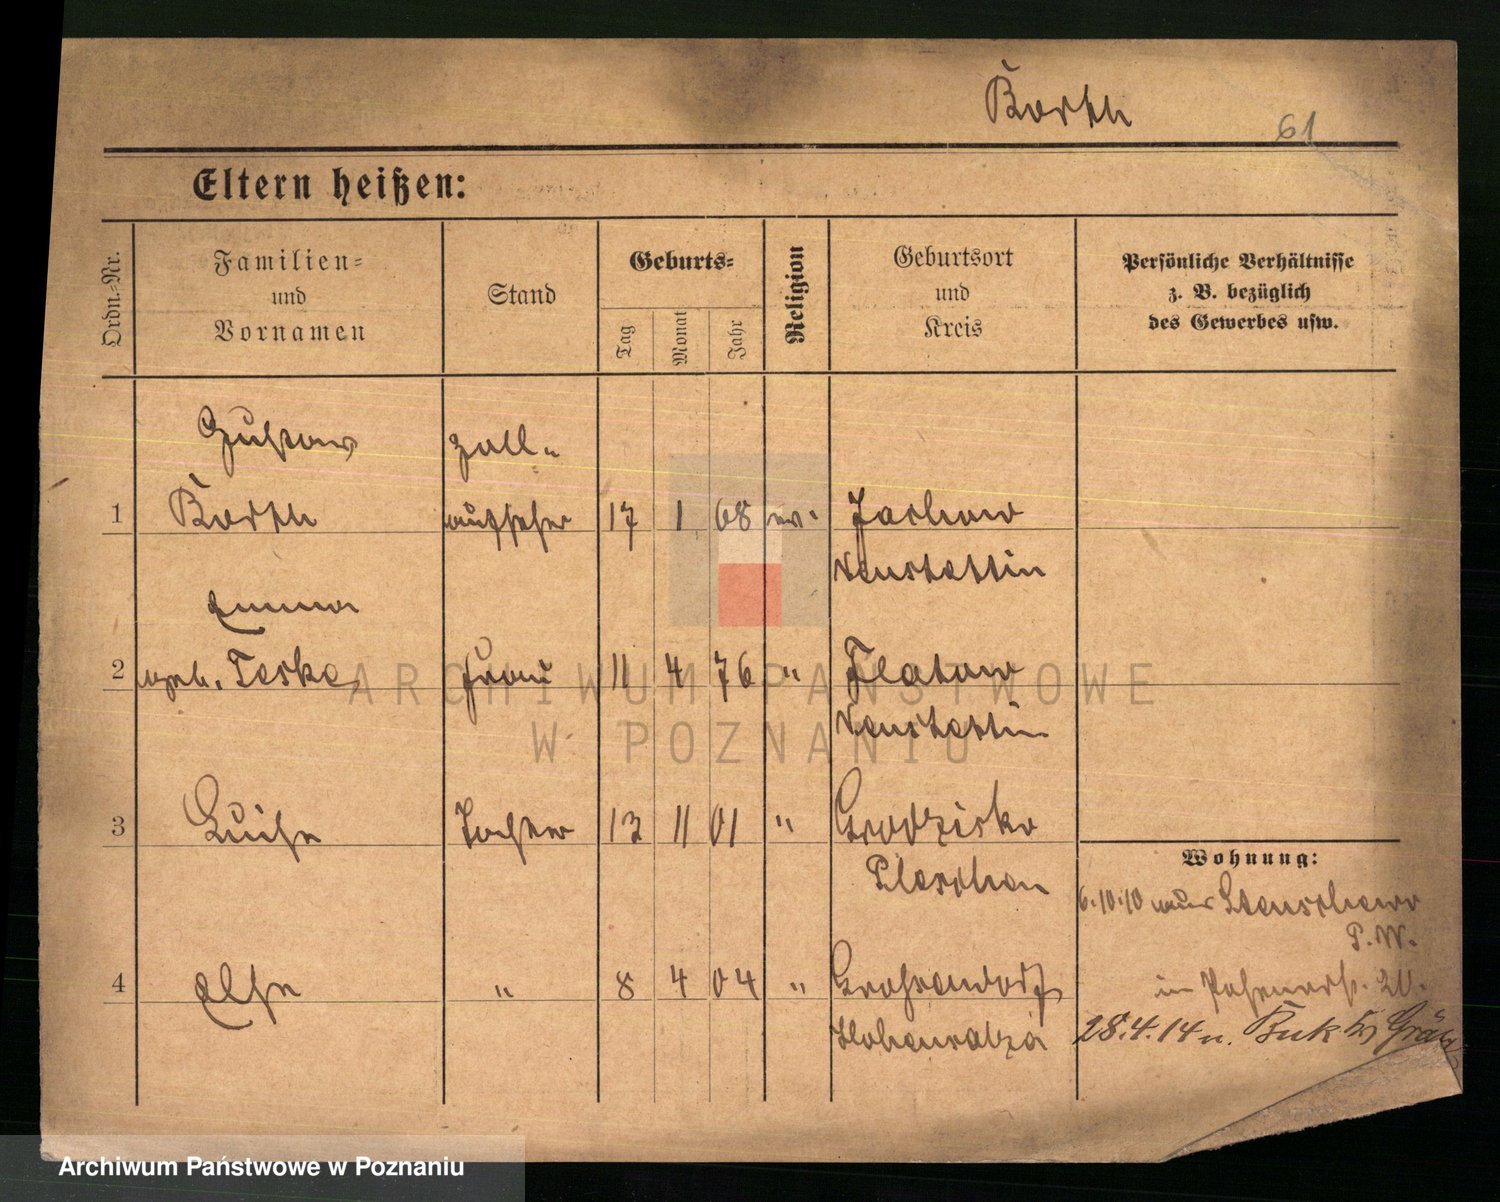 Barth
61
Eltern heißen:
Ordn.-Nr.
Familien-
und
Vornamen
Stand
Geburts-
Tag
Monat
Jahr
Religion
Geburtsort
und
Kreis
Persönliche Verhältnisse
z. B. bezüglich
des Gewerbes usw.
Gustav
Zoll-
1 Barth aufseher 17 1 68 ev. Jachow
Neustettin
Emma
2 geb. Teske Frau 11 4 76 " Flatow
Neustettin
3 Luise Tochter 13 11 01 " Grodzisko
Pleschen
Wohnung:
6.10.10 aus Stenschewo
P.W.
4 Else " 8 4 04 " Grossendorf
Hohensalza
in Posenerst. 20.
28.4.14 n. Buk Krs Grätz
ARCHIWUM PAŃSTWOWE
W POZNANIU
Archiwum Państwowe w Poznaniu